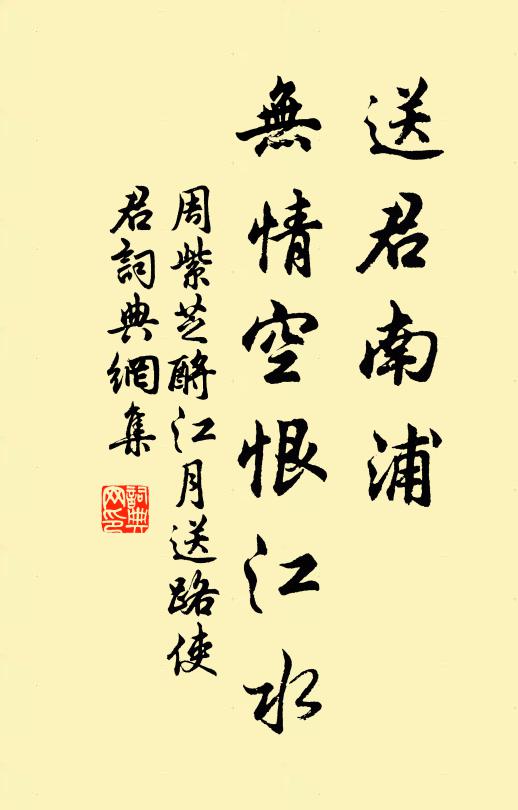 送君南浦
無情空恨江水
周紫芝酹江月送路使
君詞典網集
詞典
网印